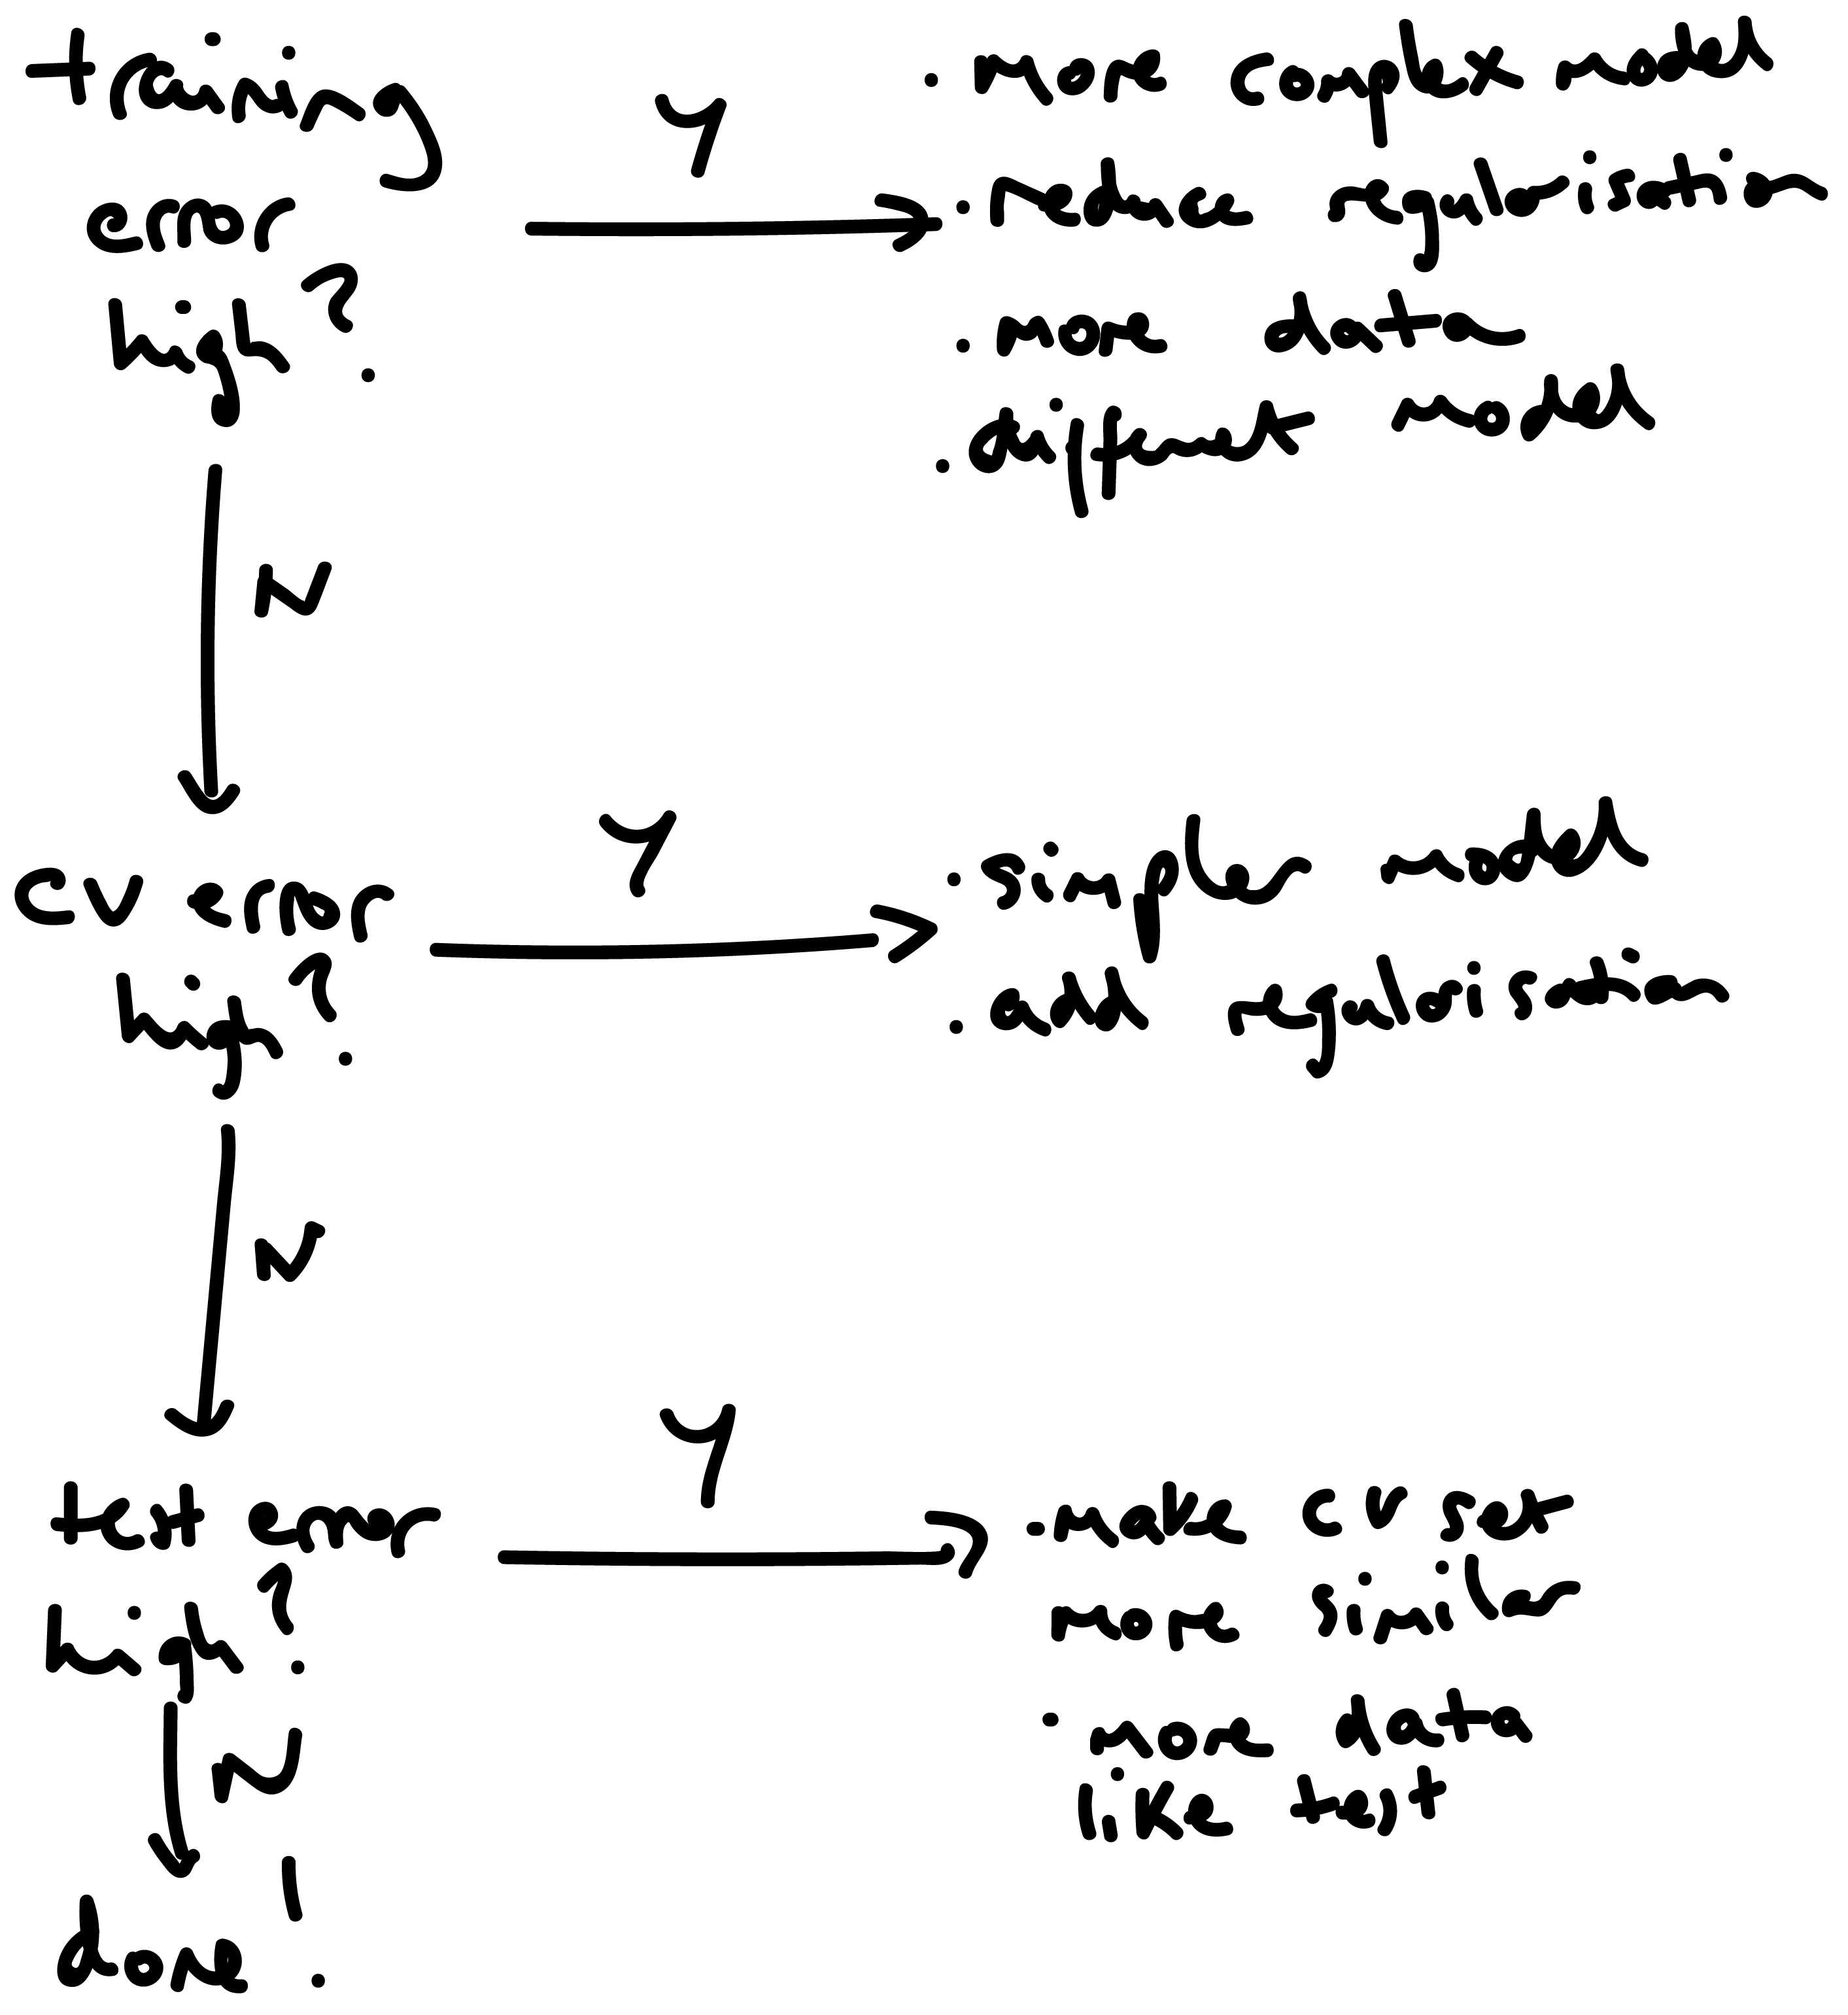 training
error
high?
Y
. more complex model
. reduce regularisation
. more data
. different model
N
cv error
high?
Y
. simpler model
. add regularisation
N
test error
high?
Y
. make cv set
more similar
. more data
like test
N
done!